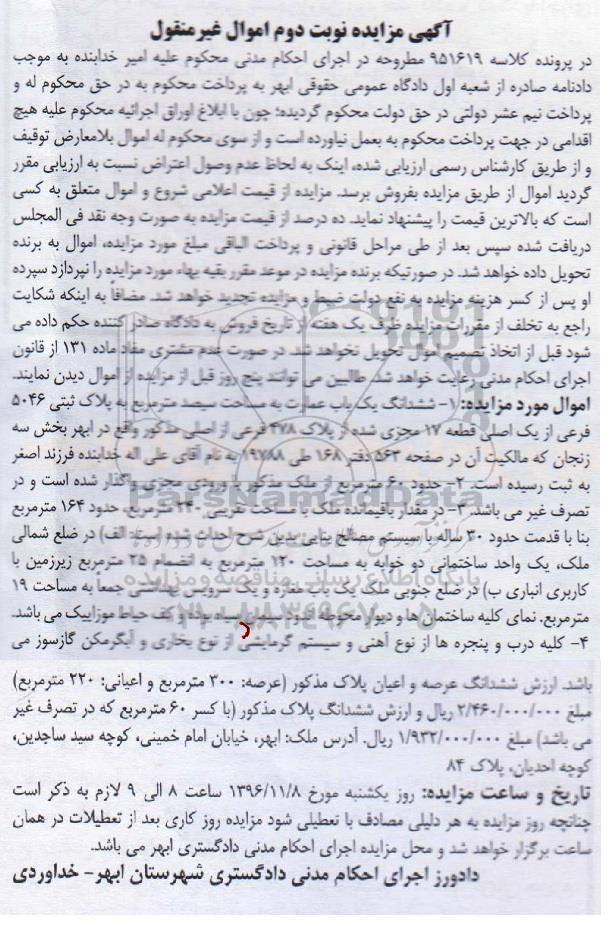 آگهی مزایده نوبت دوم اموال غیرمنقول
در پرونده کلاسه ۹۵۱۶۱۹ مطروحه در اجرای احکام مدنی محکوم علیه امیر خدابنده به موجب
دادنامه صادره از شعبه اول دادگاه عمومی حقوقی ابهر به پرداخت محکوم به در حق محکوم له و
پرداخت نیم عشر دولتی در حق دولت محکوم گردیده؛ چون با ابلاغ اوراق اجرائیه محکوم علیه هیچ
اقدامی در جهت پرداخت محکوم به بعمل نیاورده است و از سوی محکوم له اموال بلامعارض توقیف
و از طریق کارشناس رسمی ارزیابی شده، اینک به لحاظ عدم وصول اعتراض نسبت به ارزیابی مقرر
گردید اموال از طریق مزایده بفروش برسد. مزایده از قیمت اعلامی شروع و اموال متعلق به کسی
است که بالاترین قیمت را پیشنهاد نماید. ده درصد از قیمت مزایده به صورت وجه نقد فی المجلس
دریافت شده سپس بعد از طی مراحل قانونی و پرداخت الباقی مبلغ مورد مزایده، اموال به برنده
تحویل داده خواهد شد. در صورتیکه برنده مزایده در موعد مقرر بقیه بهاء مورد مزایده را نپردازد سپرده
او پس از کسر هزینه مزایده به نفع دولت ضبط و مزایده تجدید خواهد شد. مضافاً به اینکه شکایت
راجع به تخلف از مقررات مزایده ظرف یک هفته از تاریخ فروش به دادگاه صادر کننده حکم داده می
شود قبل از اتخاذ تصمیم اموال تحویل نخواهد شد. در صورت عدم مشتری مفاد ماده ۱۳۱ از قانون
اجرای احکام مدنی رعایت خواهد شد. طالبین می توانند پنج روز قبل از مزایده از اموال دیدن نمایند.
اموال مورد مزایده: ۱- ششدانگ یک باب عمارت به مساحت سیصد مترمربع به پلاک ثبتی ۵۰۴۶
فرعی از یک اصلی قطعه ۱۷ مجزی شده از پلاک ۴۷۸ فرعی از اصلی مذکور واقع در ابهر بخش سه
زنجان که مالکیت آن در صفحه ۵۶۳ دفتر ۱۶۸ طی ۱۹۷۸۸ به نام آقای علی اله خدابنده فرزند اصغر
به ثبت رسیده است. ۲- حدود ۶۰ مترمربع از ملک مذکور با ورودی مجزی واگذار شده است و در
تصرف غیر می باشد. ۳- در مقدار باقیمانده ملک با مساحت تقریبی ۲۴۰ مترمربع، حدود ۱۶۴ مترمربع
بنا با قدمت حدود ۳۰ ساله با سیستم مصالح بنایی بدین شرح احداث شده است: الف) در ضلع شمالی
ملک، یک واحد ساختمانی دو خوابه به مساحت ۱۲۰ مترمربع به انضمام ۲۵ مترمربع زیرزمین با
کاربری انباری ب) در ضلع جنوبی ملک یک باب مغازه و یک سرویس بهداشتی جمعاً به مساحت ۱۹
مترمربع. نمای کلیه ساختمان ها و دیوار محوطه سیاه بوده و کف حیاط موزاییک می باشد.
۴- کلیه درب و پنجره ها از نوع آهنی و سیستم گرمایشی از نوع بخاری و آبگرمکن گازسوز می
باشد. ارزش ششدانگ عرصه و اعیان پلاک مذکور (عرصه: ۳۰۰ مترمربع و اعیانی: ۲۲۰ مترمربع)
مبلغ ۲/۴۶۰/۰۰۰/۰۰۰ ریال و ارزش ششدانگ پلاک مذکور (با کسر ۶۰ مترمربع که در تصرف غیر
می باشد) مبلغ ۱/۹۳۲/۰۰۰/۰۰۰ ریال. آدرس ملک: ابهر، خیابان امام خمینی، کوچه سید ساجدین،
کوچه احدیان، پلاک ۸۴
تاریخ و ساعت مزایده: روز یکشنبه مورخ ۱۳۹۶/۱۱/۸ ساعت ۸ الی ۹ لازم به ذکر است
چنانچه روز مزایده به هر دلیلی مصادف با تعطیلی شود مزایده روز کاری بعد از تعطیلات در همان
ساعت برگزار خواهد شد و محل مزایده اجرای احکام مدنی دادگستری ابهر می باشد.
دادورز اجرای احکام مدنی دادگستری شهرستان ابهر- خداوردی
ParsNamadData
پایگاه اطلاع رسانی مناقصه و مزایده